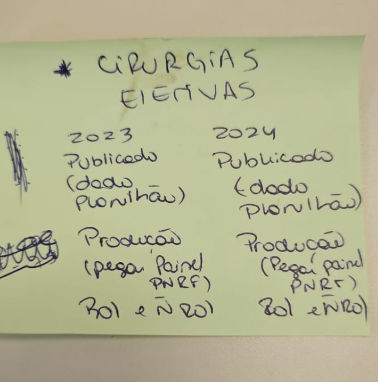 * CIRURGIAS
ELETIVAS
2023 2024
Publicado Publicado
(dado (dado
Planilhão) Planilhão)
Produção Produção
(pegar Painel (Pegar painel
PNRF) PNRF)
Rol e Ñ Rol Rol e Ñ Rol